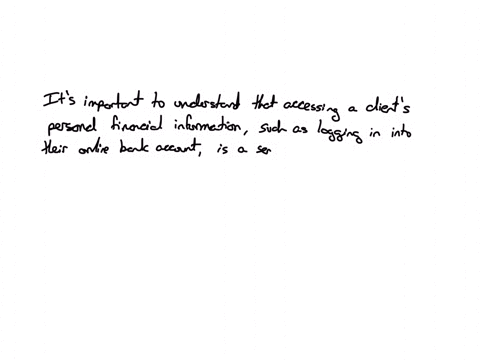 It's important to understand that accessing a client's
personal financial information, such as logging in into
their online bank account, is a ser